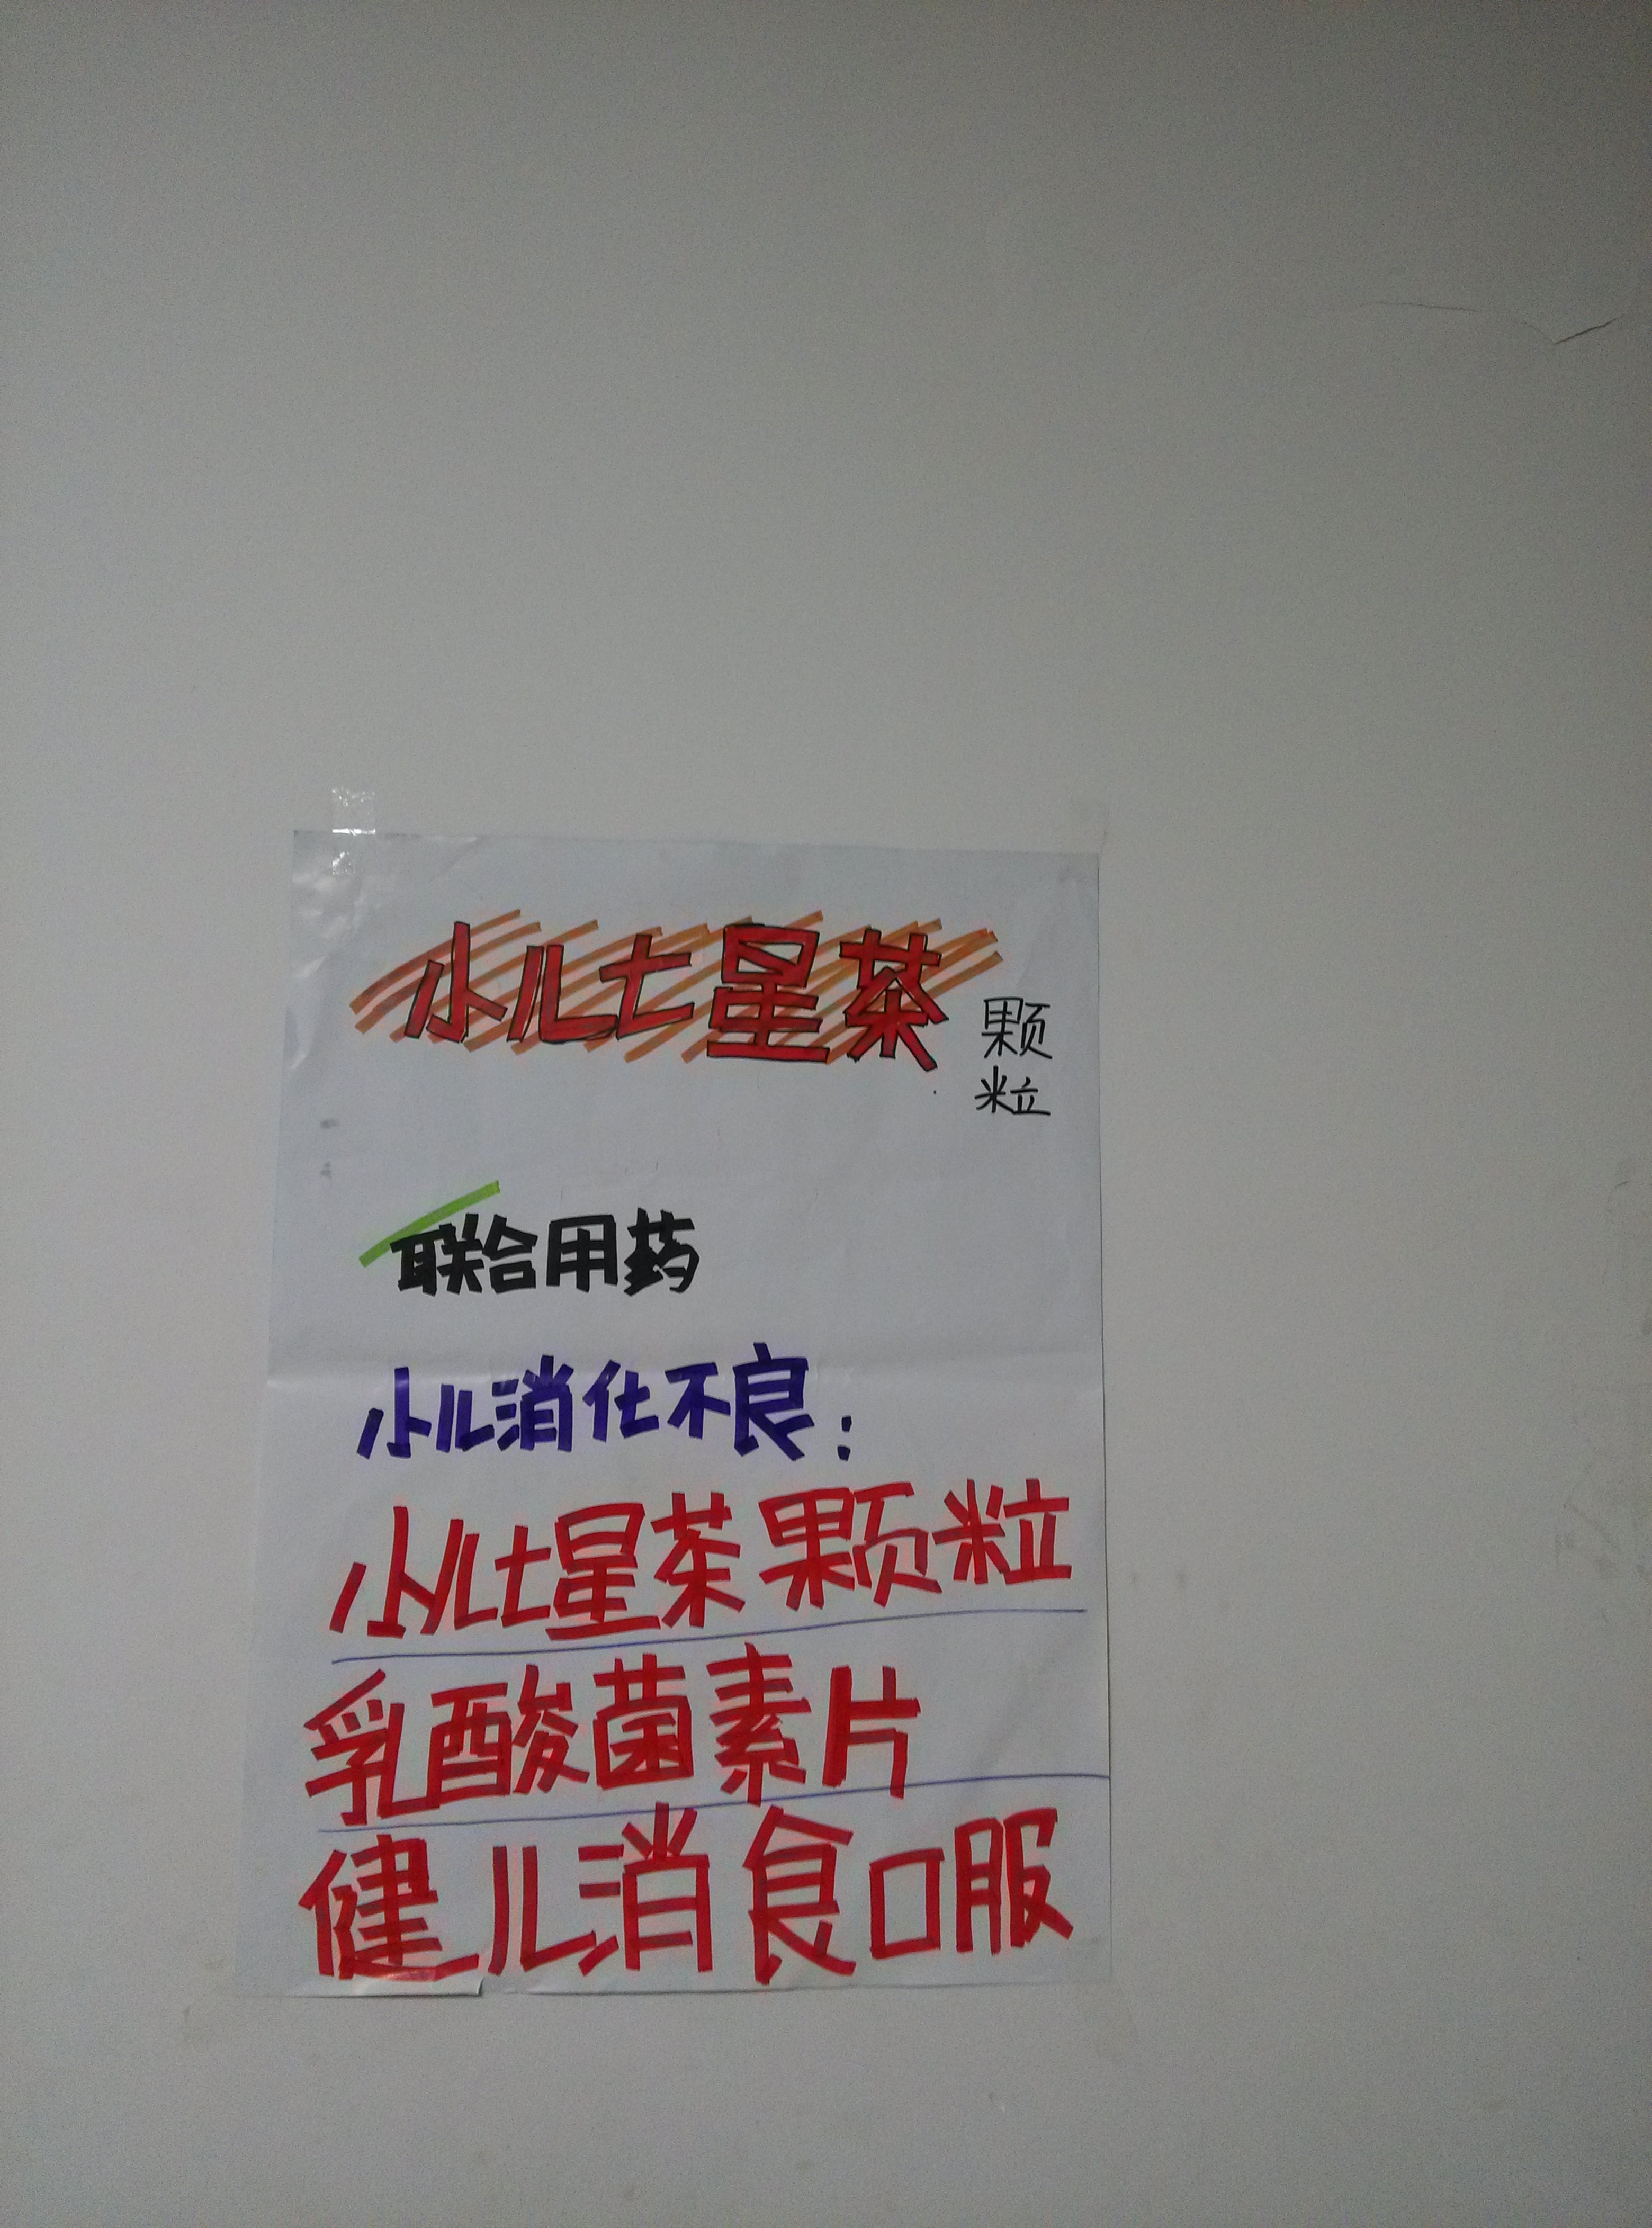 小儿七星茶颗粒
联合用药
小儿消化不良：
小儿七星茶颗粒
乳酸菌素片
健儿消食口服